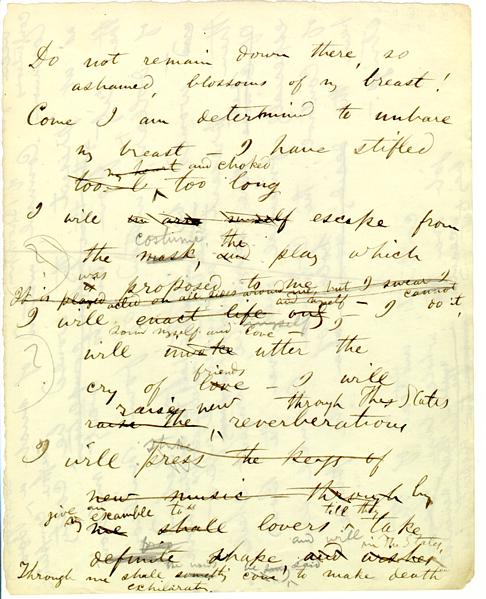 Do not remain down there, so
ashamed, blossoms of my breast!
Come I am determined to unbare
my breast – I have stifled
my heart and choked
too l too long
I will escape from
costume, the
the mask, and play which
was
is proposed to me
It is played acted on all sides around me, but I swear I cannot
and myself
I will enact life only – I – I do it,
Sound myself and love
will invoke utter the
friends
cry of love – I will
raising new through The States
raise the reverberations
I will press the keys of
new music – through by
give an example to till they
my me shall lovers take
and will in The States,
definite shape, and
Through me shall come, to make death
exhilarati